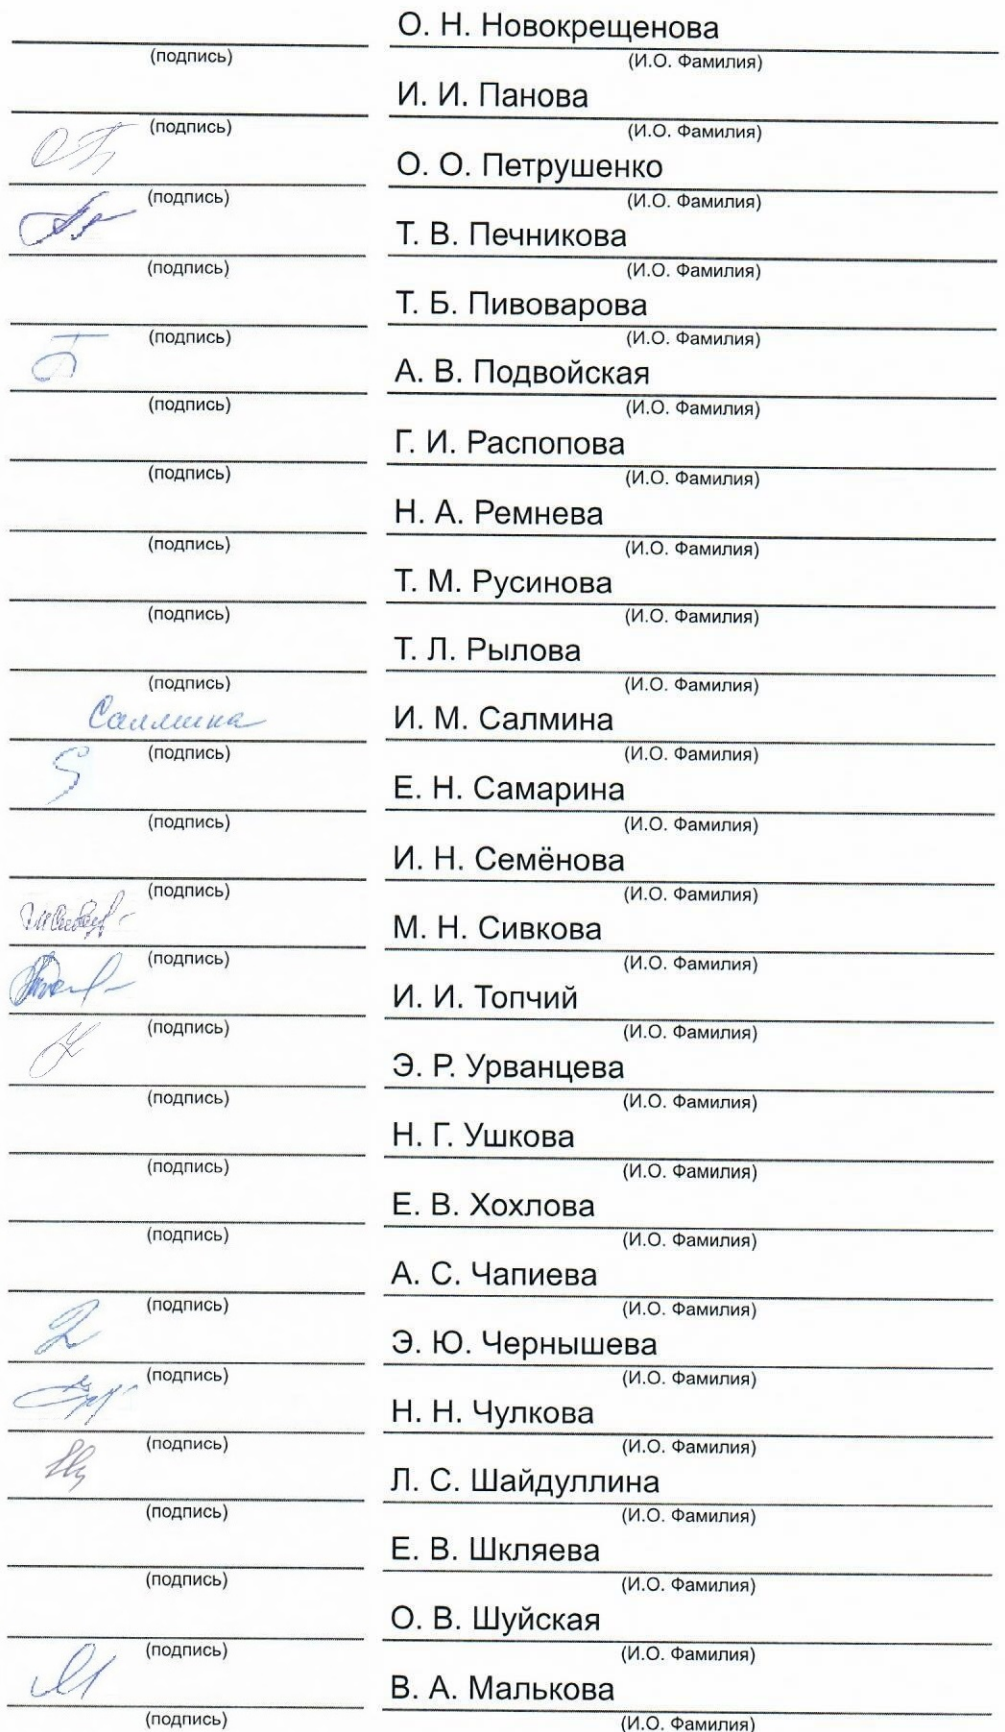 О. Н. Новокрещенова
(подпись) (И.О. Фамилия)
И. И. Панова
(подпись) (И.О. Фамилия)
О. О. Петрушенко
(подпись) (И.О. Фамилия)
Т. В. Печникова
(подпись) (И.О. Фамилия)
Т. Б. Пивоварова
(подпись) (И.О. Фамилия)
А. В. Подвойская
(подпись) (И.О. Фамилия)
Г. И. Распопова
(подпись) (И.О. Фамилия)
Н. А. Ремнева
(подпись) (И.О. Фамилия)
Т. М. Русинова
(подпись) (И.О. Фамилия)
Т. Л. Рылова
(подпись) (И.О. Фамилия)
Салмина И. М. Салмина
(подпись) (И.О. Фамилия)
Е. Н. Самарина
(подпись) (И.О. Фамилия)
И. Н. Семёнова
(подпись) (И.О. Фамилия)
М. Н. Сивкова
(подпись) (И.О. Фамилия)
И. И. Топчий
(подпись) (И.О. Фамилия)
Э. Р. Урванцева
(подпись) (И.О. Фамилия)
Н. Г. Ушкова
(подпись) (И.О. Фамилия)
Е. В. Хохлова
(подпись) (И.О. Фамилия)
А. С. Чапиева
(подпись) (И.О. Фамилия)
Э. Ю. Чернышева
(подпись) (И.О. Фамилия)
Н. Н. Чулкова
(подпись) (И.О. Фамилия)
Л. С. Шайдуллина
(подпись) (И.О. Фамилия)
Е. В. Шкляева
(подпись) (И.О. Фамилия)
О. В. Шуйская
(подпись) (И.О. Фамилия)
В. А. Малькова
(подпись) (И.О. Фамилия)